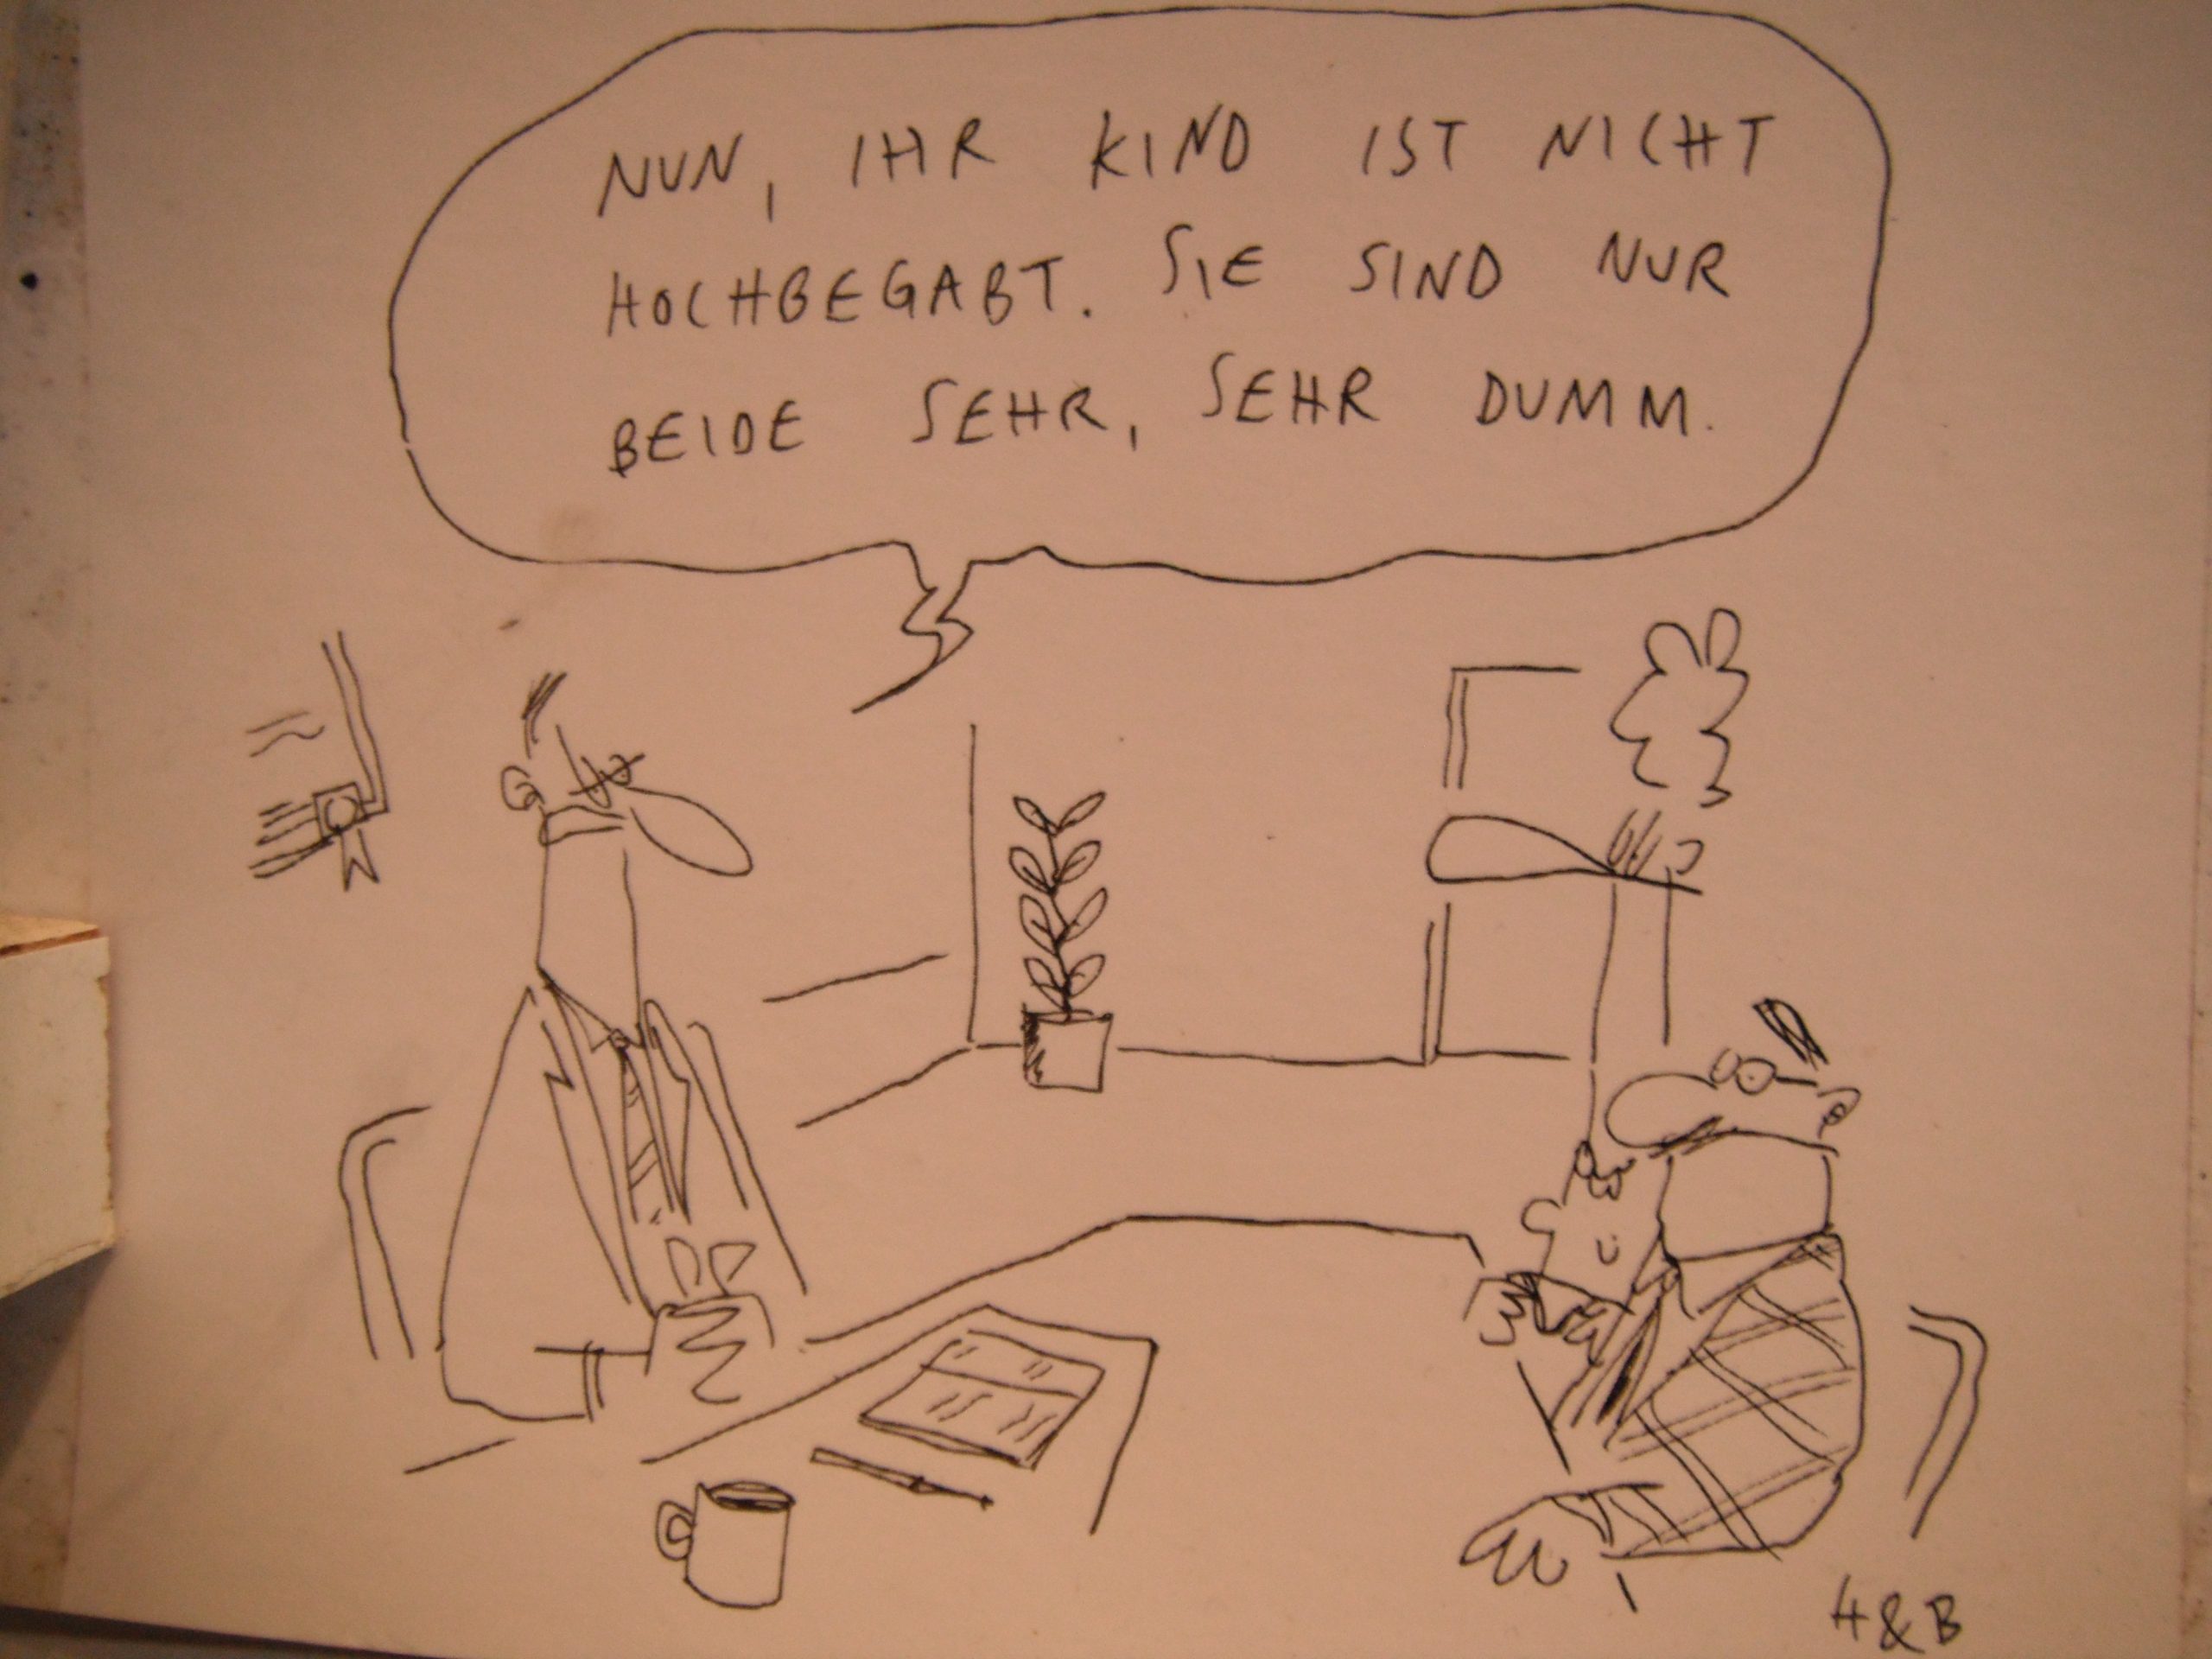 NUN, IHR KIND IST NICHT
HOCHBEGABT. SIE SIND NUR
BEIDE SEHR, SEHR DUMM.
H&B